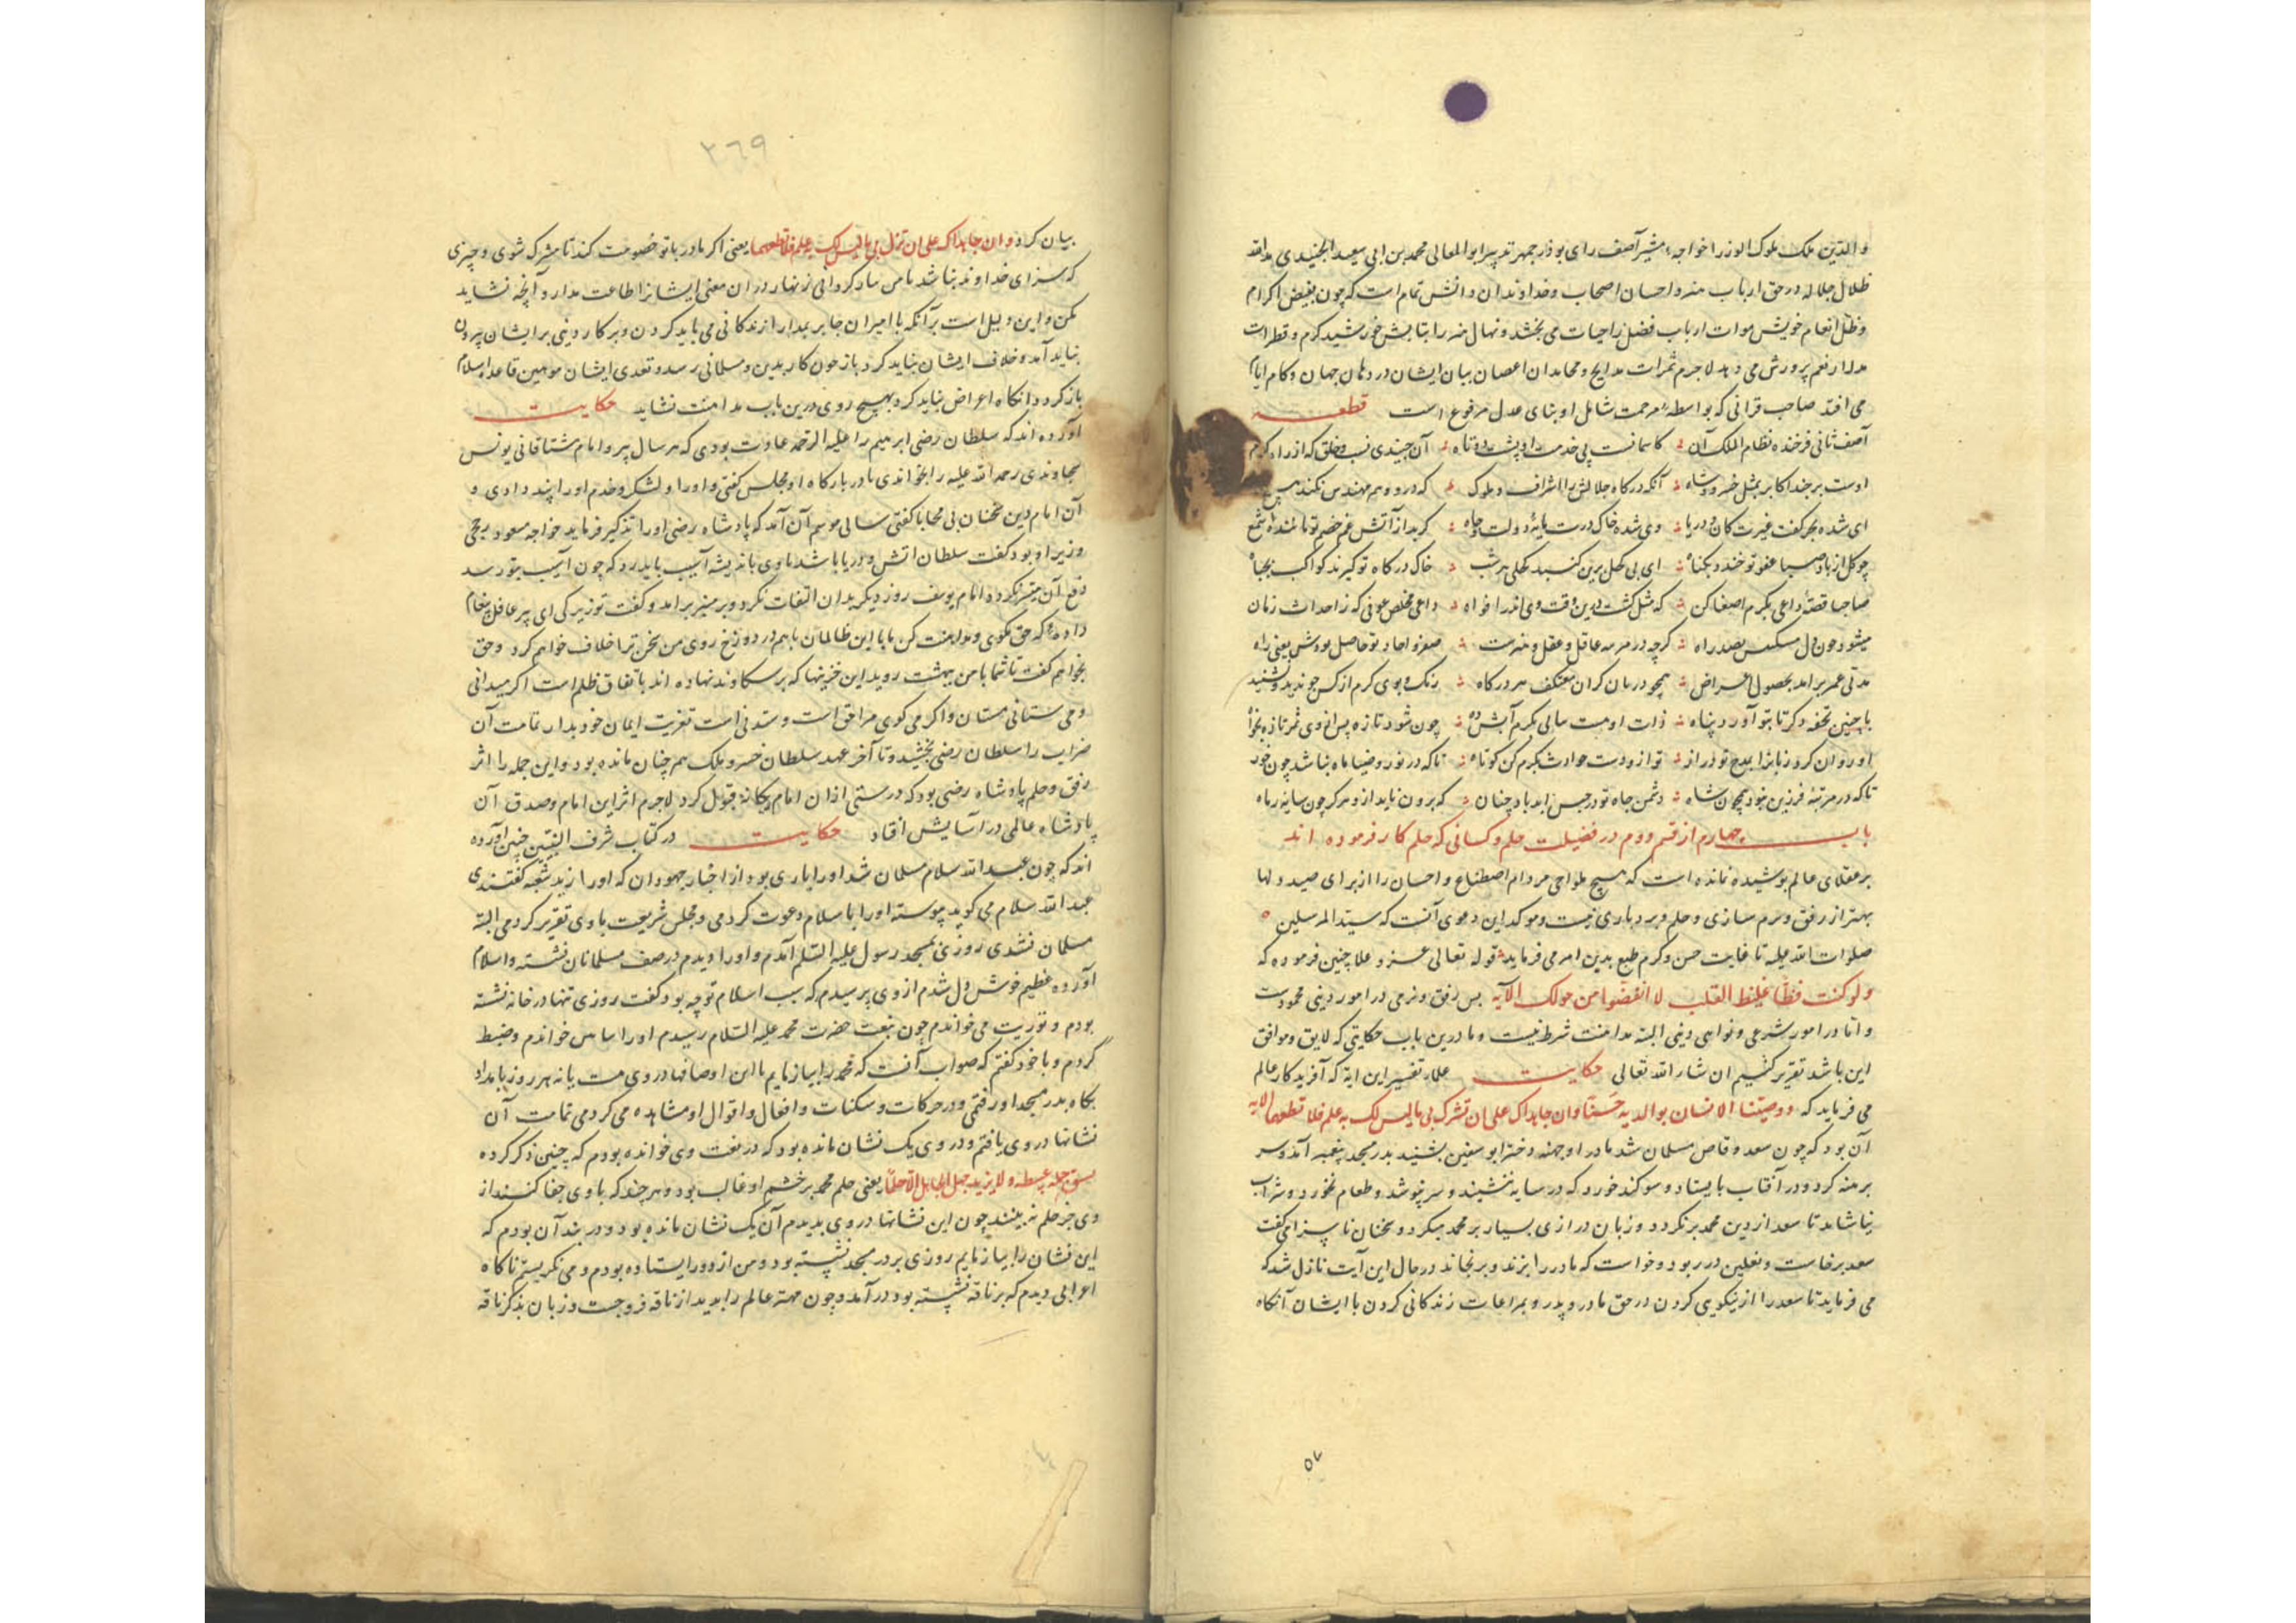 والدین ملک ملوک الوزرا خواجه مشیر آصف رای بوذرجمهر تدبیر ابوالمعالی محمد بن ابی سعید الجنیدی مد الله
ظلال جلاله در حق ارباب هنر و احسان اصحاب و خداوندان دانش تمام است که چون بفیض اکرام
و ظل انعام خویش موات ارباب فضل را حیات می بخشد و نهال هنر را بتابش خورشید کرم و قطرات
مدرار نعم پرورش می دهد لاجرم ثمرات مدایح و محامد از اغصان بیان ایشان در دهان جهان و کام ایام
می افتد صاحب قرانی که بواسطه مرحمت شامل او بنای عدل مرفوع است قطعه
آصف ثانی فرخنده نظام الملک آن کاسمانست پی خدمت او پشت دوتاه آن جنیدی نسب و خلق که از راه کرم
اوست بر جند اکابر بمثل خسرو و شاه آنکه درگاه جلالش را اشراف و ملوک که درو وهم مهندس نکند هیچ
ای شده بحر کفت غیرت کان و دریا وی شده خاک درت پایه دولت و جاه گر بد از آتش غم خصم تو مانند شمع
چو گل از باد صبا عفو تو خندد بگناه ای پی کحل برین گنبد کحلی هر شب خاک درگاه تو گیرند کواکب بجباه
صاحبا قصه داعی بکرم اصغا کن که مثل گشت درین وقت وی اندر افواه داعی مخلص عوفی که ز احداث زمان
میشود چون دل مسکینش بصد راه گرچه در مرسه عاقل و عقل و هنرست صفر و احاد تو حاصل بودش یعنی راه
مدتی عمر برامد بحصول اغراض همچو دربان گران معتکف هر درگاه رنگ و بوی کرم از کس چو ندید و نشنید
با چنین تحفه دگر تا بتو آورد پناه ذات اوست سالی بکرم آبش ده چون شود تازه پس از وی ثمر تازه بخواه
او روان کرد زبان را بمدح تو دراز تو ازو دست حوادث بکرم کن کوتاه تا که در نور و ضیا ماه نباشد چون خور
تا که در مرتبه فرزین نبود همچون شاه دشمن جاه تو در حبس ابد باد چنان که برون ناید ازو هرگز چون سایه ز ماه
باب چهارم از قسم دوم در فضیلت حلم و کسانی که حلم کار فرموده اند
بر عقلای عالم پوشیده نمانده است که هیچ طواحی مر دام اصطناع و احسان را از برای صید دلها
بهتر از رفق و نرم سازی و حلم و بردباری نیست و موکد این دعوی آنست که سید المرسلین
صلوات الله علیه تا غایت حسن و کرم طبع بدین امر می فرماید قوله تعالی عز و علا چنین فرموده که
ولو کنت فظا غلیظ القلب لا انفضوا من حولک الآیه پس رفق و نرمی در امور دینی محمودست
و اما در امور شرعی و نواهی دینی البته مداهنت شرط نیست و ما درین باب حکایتی که لایق و موافق
این باشد تقریر کنیم ان شاء الله تعالی حکایت علما در تفسیر این آیة که آفریدکار عالم
می فرماید که ووصینا الانسان بوالدیه حسنا وان جاهداک علی ان تشرک بی ما لیس لک به علم فلا تطعهما الایه
آن بود که چون سعد وقاص مسلمان شد مادر او جهنه دختر ابو سفین بشنید بدر مسجد پیغمبر آمد و سر
برهنه کرد و در آفتاب بایستاد و سوگند خورد که در سایه ننشیند و سر نپوشد و طعام نخورد و شراب
نیاشامد تا سعد از دین محمد برنگردد و زبان درازی بسیار بر محمد میکرد و سخنان ناپسزا می گفت
سعد برخاست و نعلین در ربود و خواست که مادر را بزند و برنجاند در حال این آیت نازل شد که
می فرماید تا سعد را از نیکویی کردن در حق مادر و پدر و بمراعات زندگانی کردن با ایشان آنگاه
۵۷
۲۶۹
بیان کرد وان جاهداک علی ان تشرک بی ما لیس لک به علم فلا تطعهما یعنی اگر مادر با تو خصومت کند تا مشرک شوی و چیزی
که سزای خداوند نباشد با من یاد کردانی زنهار در آن معنی ایشانرا طاعت مدار و آنچه نشاید
مکن و این دلیل است برآنکه با امیران جابر بمدارا زندگانی می باید کردن و بر کار دینی بر ایشان بیرون
نباید آمد و خلاف ایشان نباید کرد باز چون کار بدین و مسلمانی رسد و تعدی ایشان موهین قاعده اسلام
باز گردد آنگاه اعراض نباید کرد بهیچ روی درین باب مداهنت نشاید حکایت
آورده اند که سلطان رضی ابرهیم را علیه الرحمه عادت بودی که هر سال پیر و امام مشتاقانی یونس
سجاوندی رحمه الله علیه را بخواندی تا در بارگاه او مجلس گفتی و او را و لشکر و خدم او را پند دادی و
آن امام دین سخنان بی محابا گفتی سالی موسم آن آمد که پادشاه رضی او را تذکیر فرماید خواجه مسعود
وزیر او بود گفت سلطان آتش و دریا باشد با وی باندیشه آسیب باید زد که چون آسیب بتو رسد
دفع آن میسر نگردد امام یوسف روز دیگر بدان التفات نکرد و بر منبر برامد و گفت تو زیرکی ای پیر عاقل پیغام
داده که حق مگوی و مداهنت کن تا با این ظالمان باهم در دوزخ روی من سخن ترا خلاف خواهم کرد و حق
بخواهم گفت تا شما با من ببهشت روید این خزینها که بر سکاوند نهاده اند باتفاق ظلم است اگر میدانی
و می ستانی مستان و اگر می گوی مرا حق است و ستدنی است تعزیت ایمان خود بدار تمامت آن
ضراب را سلطان رضی بخشید و تا آخر عهد سلطان خسرو ملک هم چنان مانده بود و این جمله را اثر
رفق و حلم پادشاه رضی بود که درستی از آن امام یگانه قبول کرد لاجرم اثر این امام و صدق آن
پادشاه عالمی در آسایش افتاد حکایت در کتاب شرف النبی چنین آورده
اند که چون عبدالله سلام مسلمان شد او را یاری بود از اخبار جهودان که او را زید شعبه گفتندی
عبدالله سلام می گوید پیوسته او را باسلام دعوت کردمی و مجلس شریعت با وی تقریر کردمی البته
مسلمان نشدی روزی بمسجد رسول علیه السلم آمدم و او را دیدم در صف مسلمانان نشسته و اسلام
آورده عظیم خوش دل شدم از وی پرسیدم که سبب اسلام تو چه بود گفت روزی تنها در خانه نشسته
بودم و توریت می خواندم چون بنعت حضرت محمد علیه السلام رسیدم او را خواندم و ضبط
کردم و با خود گفتم که صواب آنست که محمد را بیازمایم تا این اوصافها در وی هست یا نه هر روز بامداد
بگاه بدر مسجد او رفتمی و در حرکات و سکنات و افعال و اقوال او مشاهده می کردمی تمامت آن
نشانها در وی یافتم و در وی یک نشان مانده بود که در نعت وی خوانده بودم که چنین ذکر کرده
یسبق حلمه ولا یزید جهل الجاهل الا حلما یعنی حلم محمد بر خشم او غالب بود و هر چند که با وی جفا کنند از
وی جز حلم نه بینند چون این نشانها در وی بدیدم آن یک نشان مانده بود و در بند آن بودم که
این نشان را بیازمایم روزی بر در مسجد نشسته بود و من از دور ایستاده بودم و می نگریستم ناگاه
اعرابی دیدم که بر ناقه نشسته بود درآمد و چون مهتر عالم را بدید از ناقه فرو جست و زبان بذکر ناقه